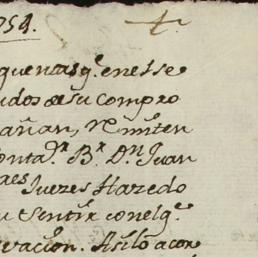 754.
quentas q.e en esse
udos de su compro
añan, Rimiten
Conta.r B.r D.n Juan
Juezes Hazedo
u Sentir con el q.e
eracion. Asi lo acor